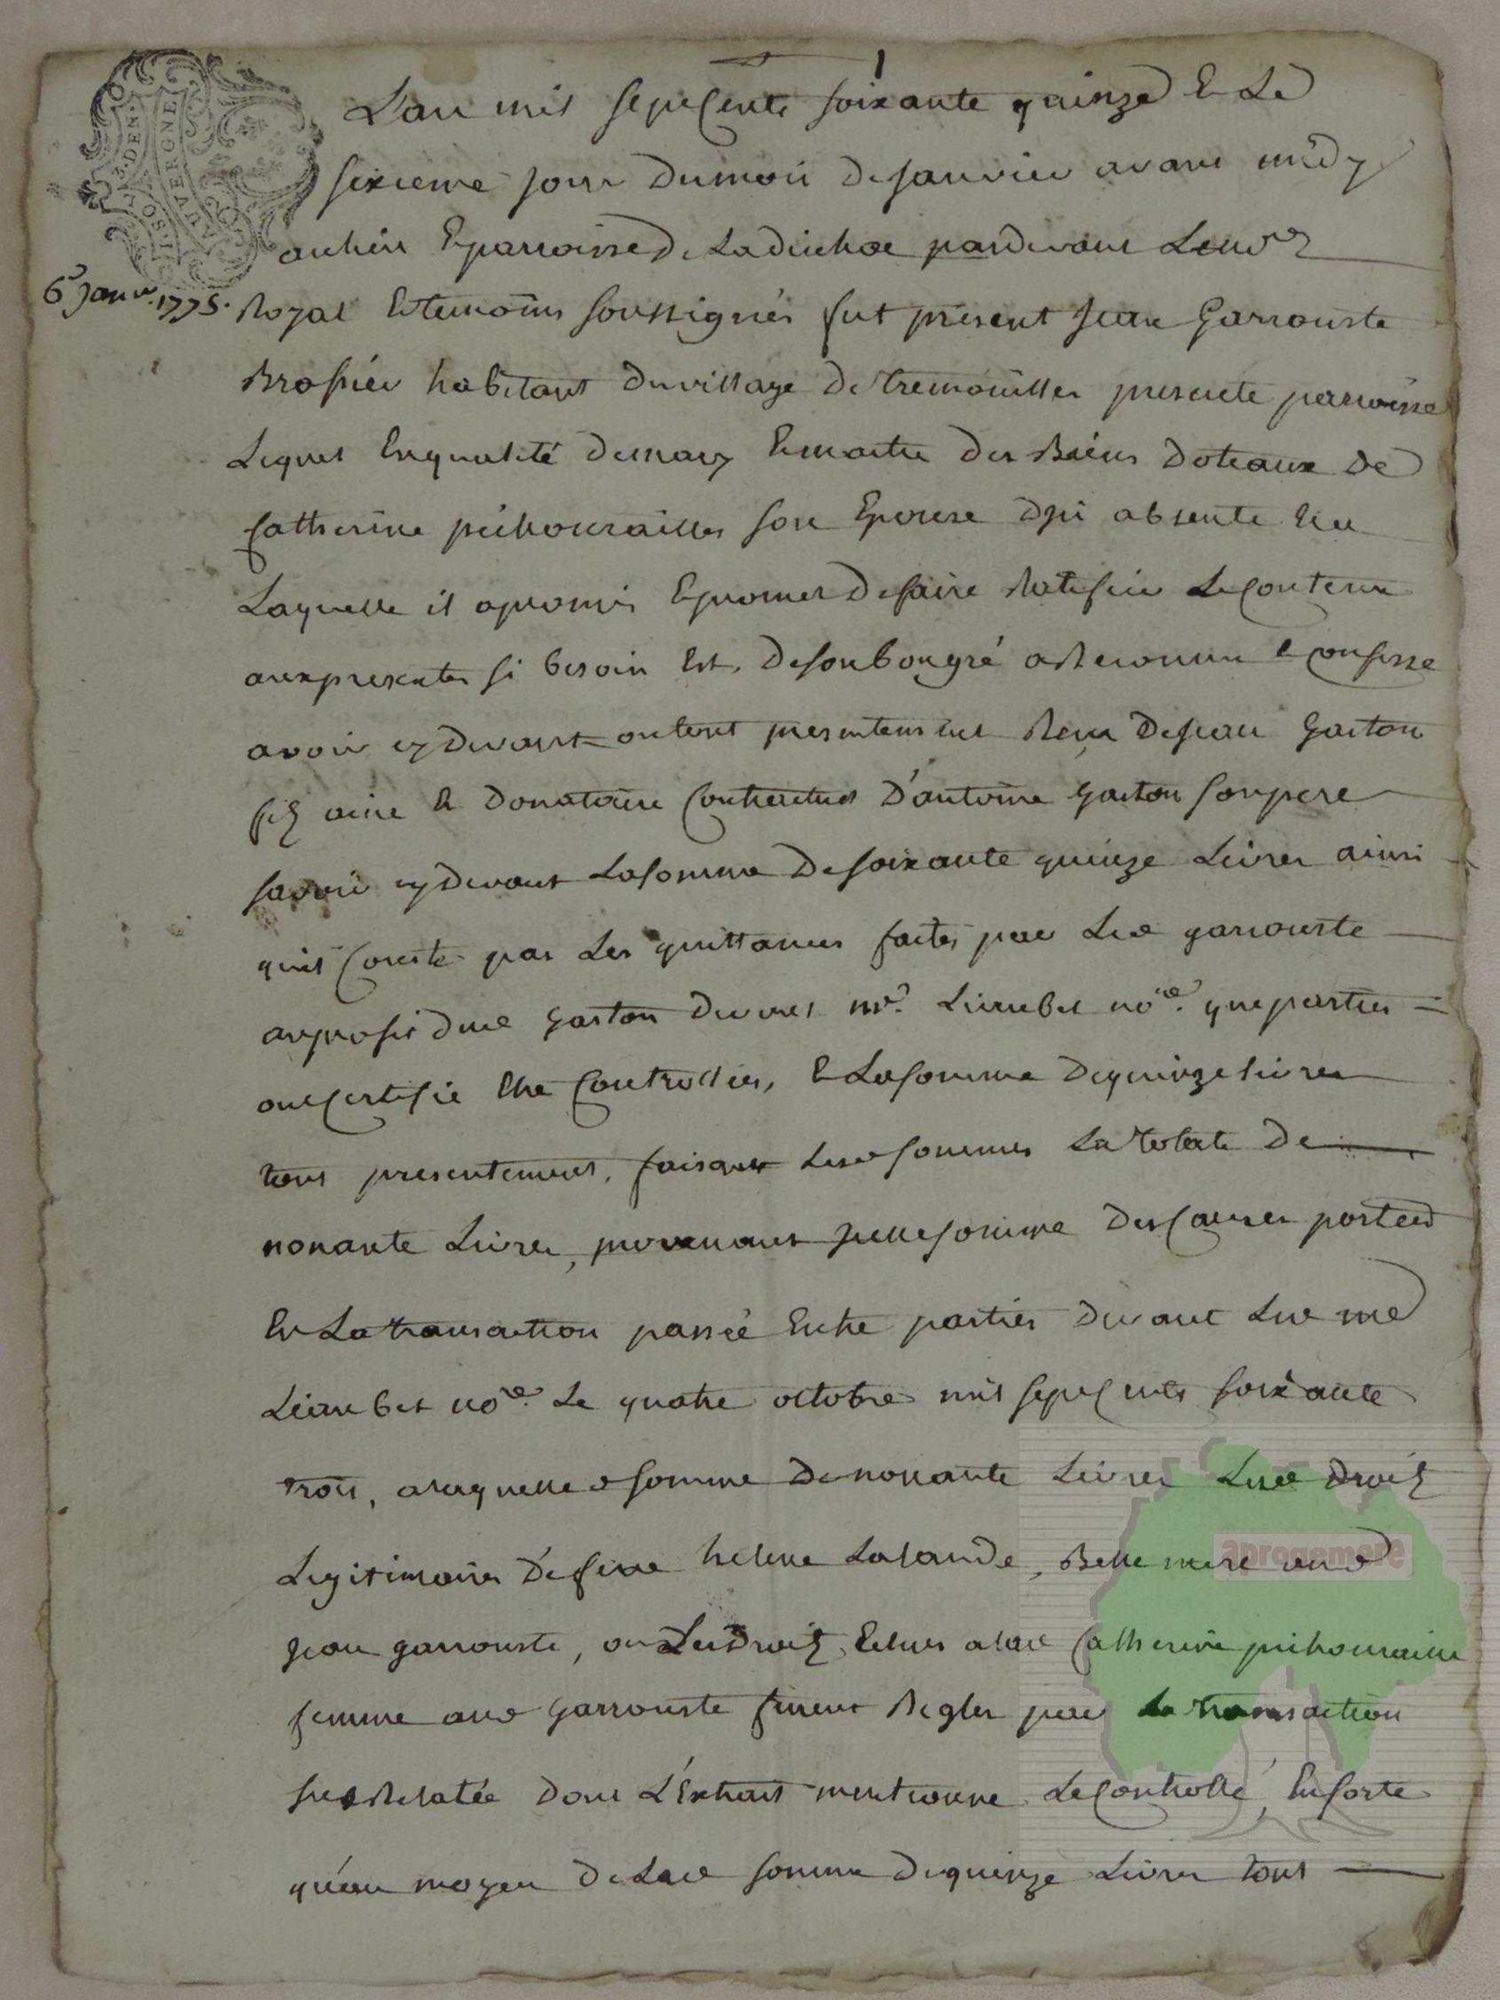 L'an mil sept cents soixante quinze & Le
sixieme jour du mois de janvier avant midy
au lieu & parroisse de Ladinhac pardevant Le no.re
6 janv. 1775.
Royal & temoins soussignés fut present Jean Garrouste
Brassier habitant du village de tremouilles presente parroisse
Lequel En qualité de mary & maitre des Biens dotaux de
Catherine puihourailles son Epouse d'ici absente
Laquelle il a promis & promet de faire Ratifier Le contenu
aux presentes si besoin Est, de son bon gré a Reconnu & confesse
avoir cy devant ou tout presentement Reçu de jean Gaston
fils ainé & Donataire Contractuel D'antoine Gaston son pere
savoir cy devant La somme de soixante quinze Livres ainsi
qu'il Conste par Les quittances faites par Led garrouste
au profit dud Gaston devant me. Lieaubet no.re que parties
ont certifié Etre Controllées, & La somme de quinze livres
tout presentement, faisant Lesd sommes La totale de
nonante Livres, provenant icelle somme des Causes portées
En La transaction passée Entre parties devant Led me
Lieaubet no.re Le quatre octobre mil sept cents soixante
trois, a laquelle d somme de nonante Livres Lesd droits
Legitimaires de feue helene Lalande, Belle mere aud
jean garrouste, ou Les Droits Echus a lad Catherine puihouraille
femme aud Garrouste furent Reglés par La transaction
sus Relatée dont L'Extrait mentionne Le Controlle, En sorte
qu'au moyen de Lad somme de quinze Livres tout
J.SOL.DEN.
AUVERGNE
aprogemere